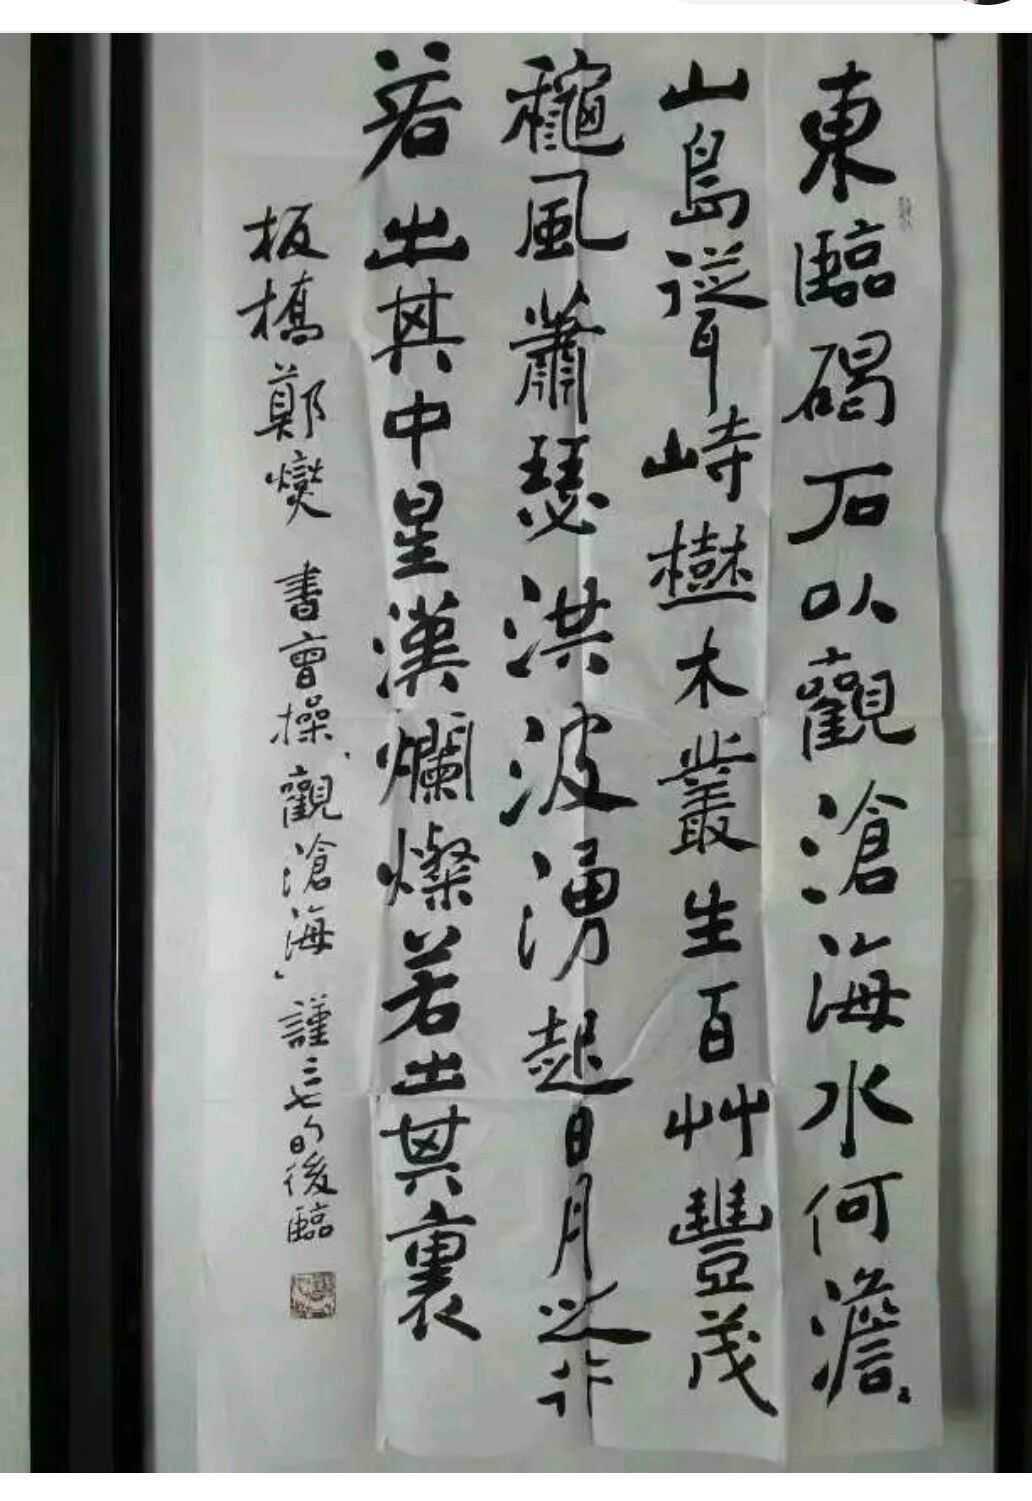 東臨碣石以觀滄海水何澹〻
山島聳峙樹木叢生百艸豐茂
龝風蕭瑟洪波湧起日月之行
若出其中星漢爛燦若出其裏
板橋鄭燮 書曹操觀滄海 謹 後臨